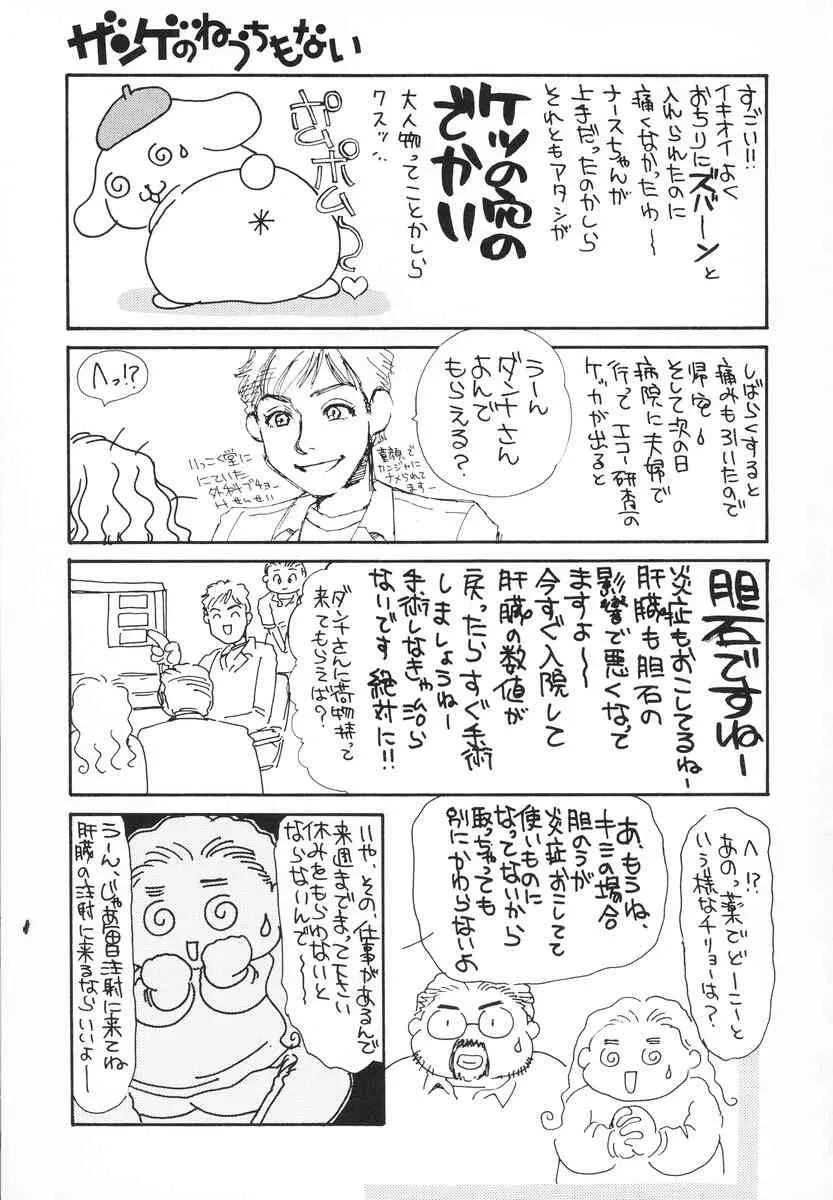 ザンゲのねうちもない
すごい!!
イキオイよく
おちりにズバーンと
入れられたのに
痛くなかったわ〜
ナースちゃんが
上手だったのかしら
それともアタシが
ケツの穴の
でかい
大人物ってことかしら
クスッ…
ポムポム〜♡
しばらくすると
痛みも引いたので
帰宅。
そして次の日
病院に夫婦で
行って エコー検査の
ケッカが出ると
うーん
ダンナさん
よんで
もらえる?
童顔で
カンジャに
ナメられて
ますー
いっこく堂に
にていた
外科ブチョー
せんせい
へっ!?
胆石ですねー
炎症もおこしてるねー
肝臓も胆石の
影響で悪くなって
ますよ〜
今すぐ入院して
肝臓の数値が
戻ったらすぐ手術
しましょうねー
手術しなきゃ治ら
ないです 絶対に!!
ダンナさんに荷物持って
来てもらえば?
へ!?
あのっ薬でどーこーと
いう様なチリョーは?
あ、もうね、
キミの場合
胆のうが
炎症おこしてて
使いものに
なってないから
取っちゃっても
別にかわらないよ
いや、その、仕事があるんで
来週まで待って下さい
休みをもらわないと
ならないんで〜
うーん、じゃあ毎日注射に来てね
肝臓の注射に来るならいいよー